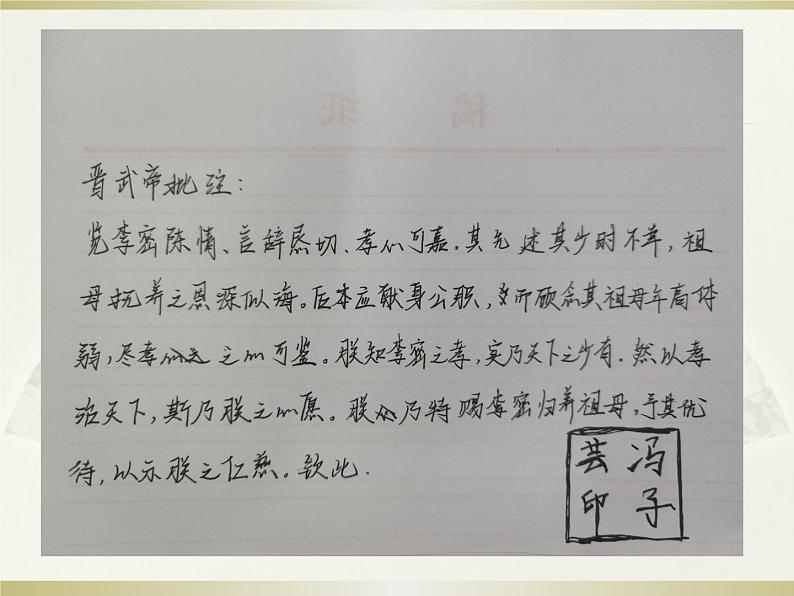 稿 纸
晋武帝批注：
览李密陈情、言辞恳切、孝心可嘉。其先述其少时不幸，祖
母抚养之恩深似海。后本应献身公职，然而顾念其祖母年高体
弱，尽孝之心可鉴。朕知李密之孝，实乃天下之少有。然以孝
治天下，斯乃朕之心愿。朕乃特赐李密归养祖母，予其优
待，以示朕之仁慈。钦此.
芸 冯
印 子